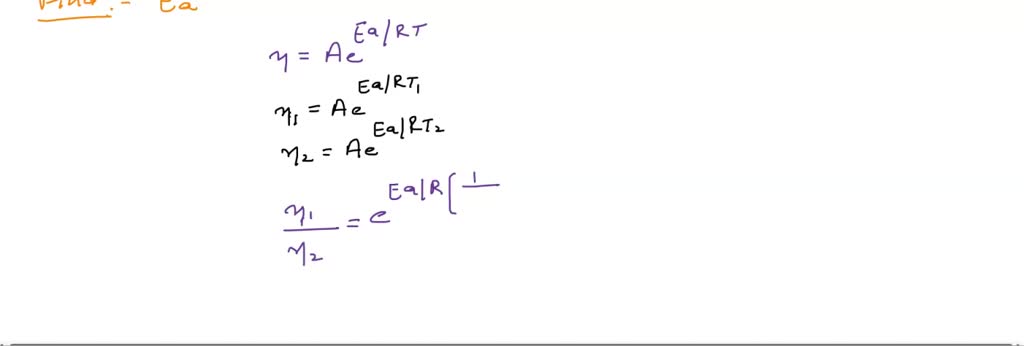 Ea
η = Ae^Ea/RT
η₁ = Ae^Ea/RT₁
η₂ = Ae^Ea/RT₂
η₁/η₂ = e^Ea/R[1/